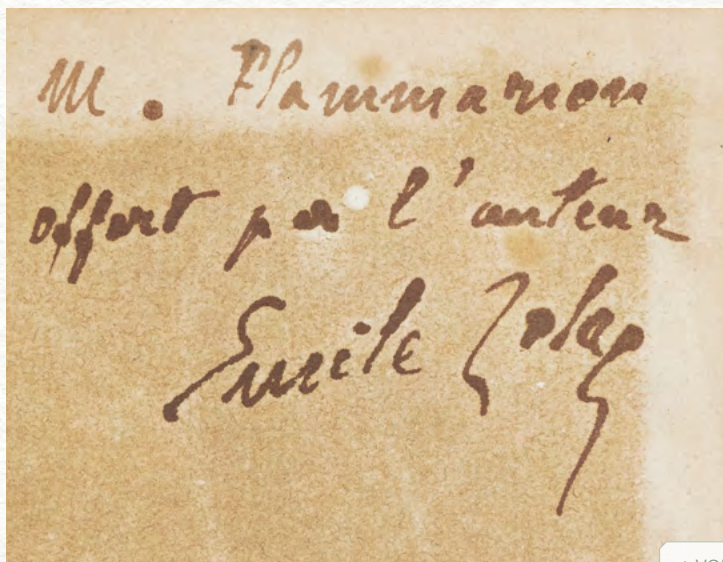 M. Flammarion
offert par l'auteur
Emile Zola